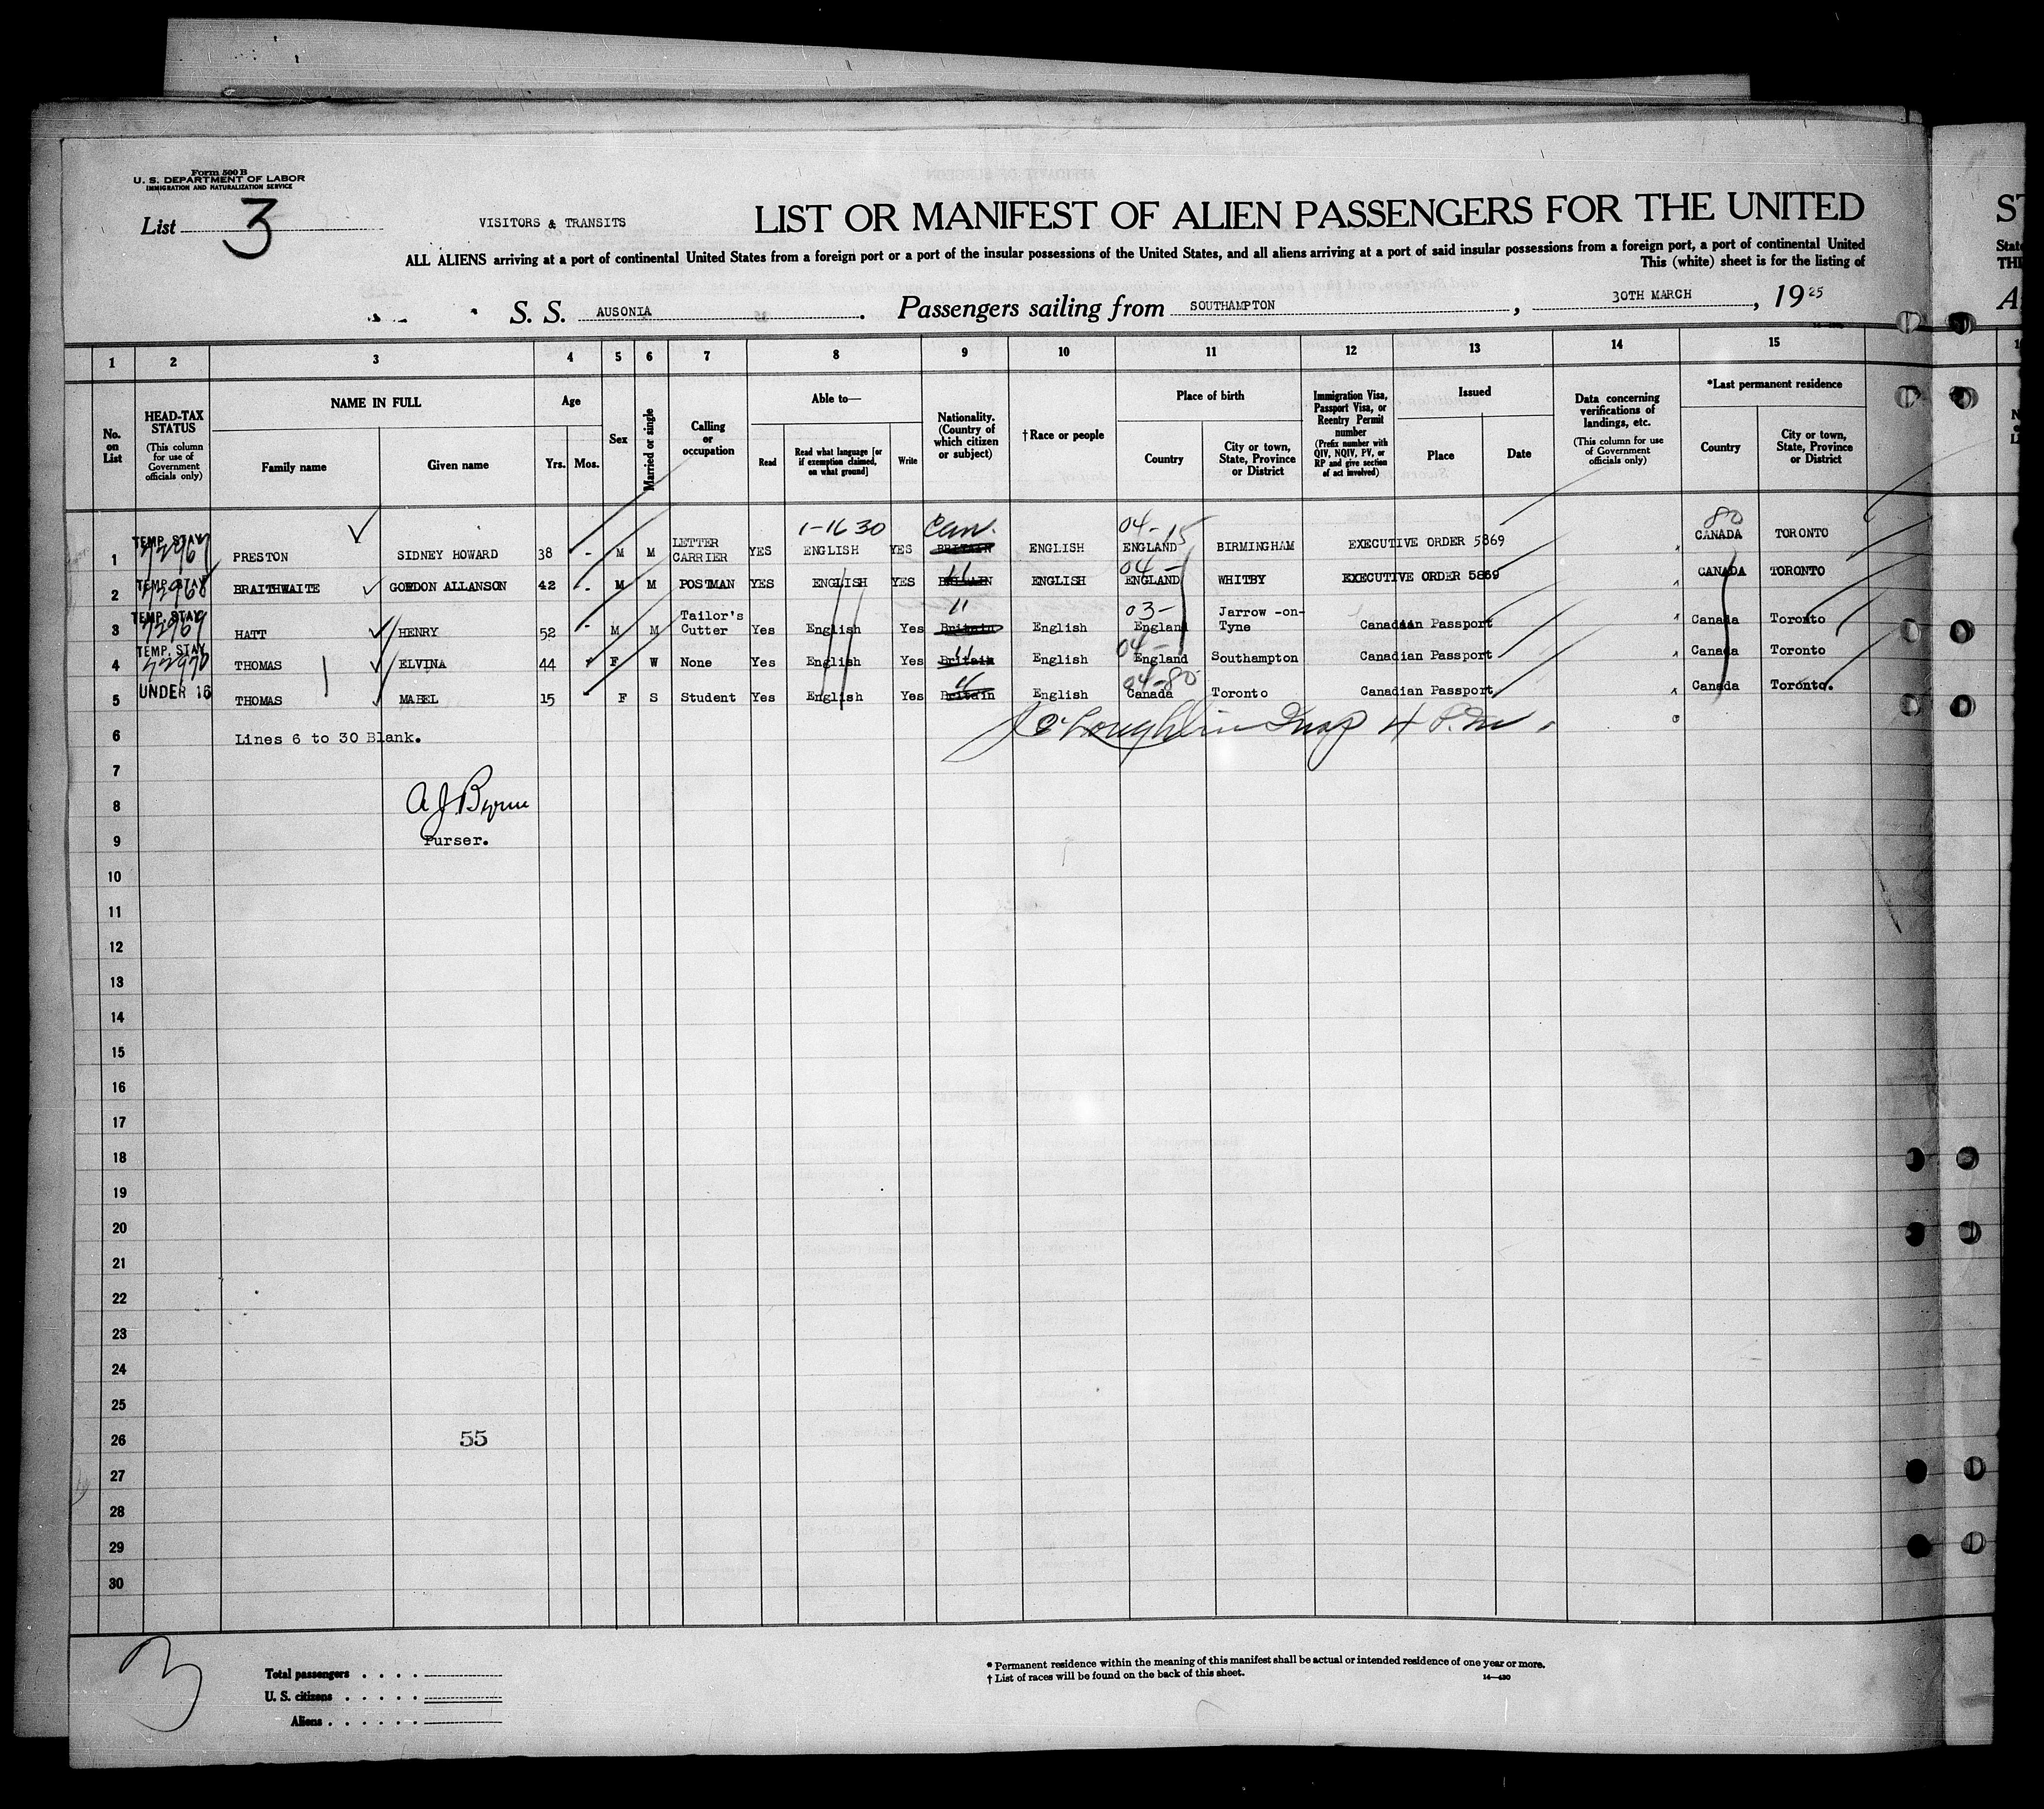 Form 500 B
U. S. DEPARTMENT OF LABOR
IMMIGRATION AND NATURALIZATION SERVICE
List 3
VISITORS & TRANSITS
LIST OR MANIFEST OF ALIEN PASSENGERS FOR THE UNITED
ST
ALL ALIENS arriving at a port of continental United States from a foreign port or a port of the insular possessions of the United States, and all aliens arriving at a port of said insular possessions from a foreign port, a port of continental United
This (white) sheet is for the listing of
S. S. AUSONIA. Passengers sailing from SOUTHAMPTON, 30TH MARCH, 1925
1 2 3 4 5 6 7 8 9 10 11 12 13 14 15
No. on List
HEAD-TAX STATUS
(This column for use of Government officials only)
NAME IN FULL
Family name
Given name
Age
Yrs. Mos.
Sex
Married or single
Calling or occupation
Able to—
Read
Read what language [or if exemption claimed, on what ground]
Write
Nationality. (Country of which citizen or subject)
†Race or people
Place of birth
Country
City or town, State, Province or District
Immigration Visa, Passport Visa, or Reentry Permit number
(Prefix number with QIV, NQIV, PV, or RP and give section of act involved)
Issued
Place
Date
Data concerning verifications of landings, etc.
(This column for use of Government officials only)
*Last permanent residence
Country
City or town, State, Province or District
1-1630 Can. 04-15 80
1 TEMP. STAY 72967 PRESTON SIDNEY HOWARD 38 - M M LETTER CARRIER YES ENGLISH YES BRITAIN ENGLISH ENGLAND BIRMINGHAM EXECUTIVE ORDER 5869 CANADA TORONTO
2 TEMP. STAY 72968 BRAITHWAITE GORDON ALLANSON 42 - M M POSTMAN YES ENGLISH YES BRITAIN 11 ENGLISH 04- ENGLAND WHITBY EXECUTIVE ORDER 5869 CANADA TORONTO
3 TEMP. STAY 72969 HATT HENRY 52 - M M Tailor's Cutter Yes English Yes 11 Britain English 03- England Jarrow -on-Tyne Canadian Passport Canada Toronto
4 TEMP. STAY 72970 THOMAS ELVINA 44 F W None Yes English Yes 11 Britain English 04- England Southampton Canadian Passport Canada Toronto
5 UNDER 16 THOMAS MABEL 15 F S Student Yes English Yes 11 Britain English 04-80 Canada Toronto Canadian Passport Canada Toronto.
6 Lines 6 to 30 Blank.
J O'Loughlin Insp 4 P.M.
7
8 A J Byrne
9 Purser.
10
11
12
13
14
15
16
17
18
19
20
21
22
23
24
25
26 55
27
28
29
30
3
Total passengers
U. S. citizens
Aliens
* Permanent residence within the meaning of this manifest shall be actual or intended residence of one year or more.
† List of races will be found on the back of this sheet.
14—430